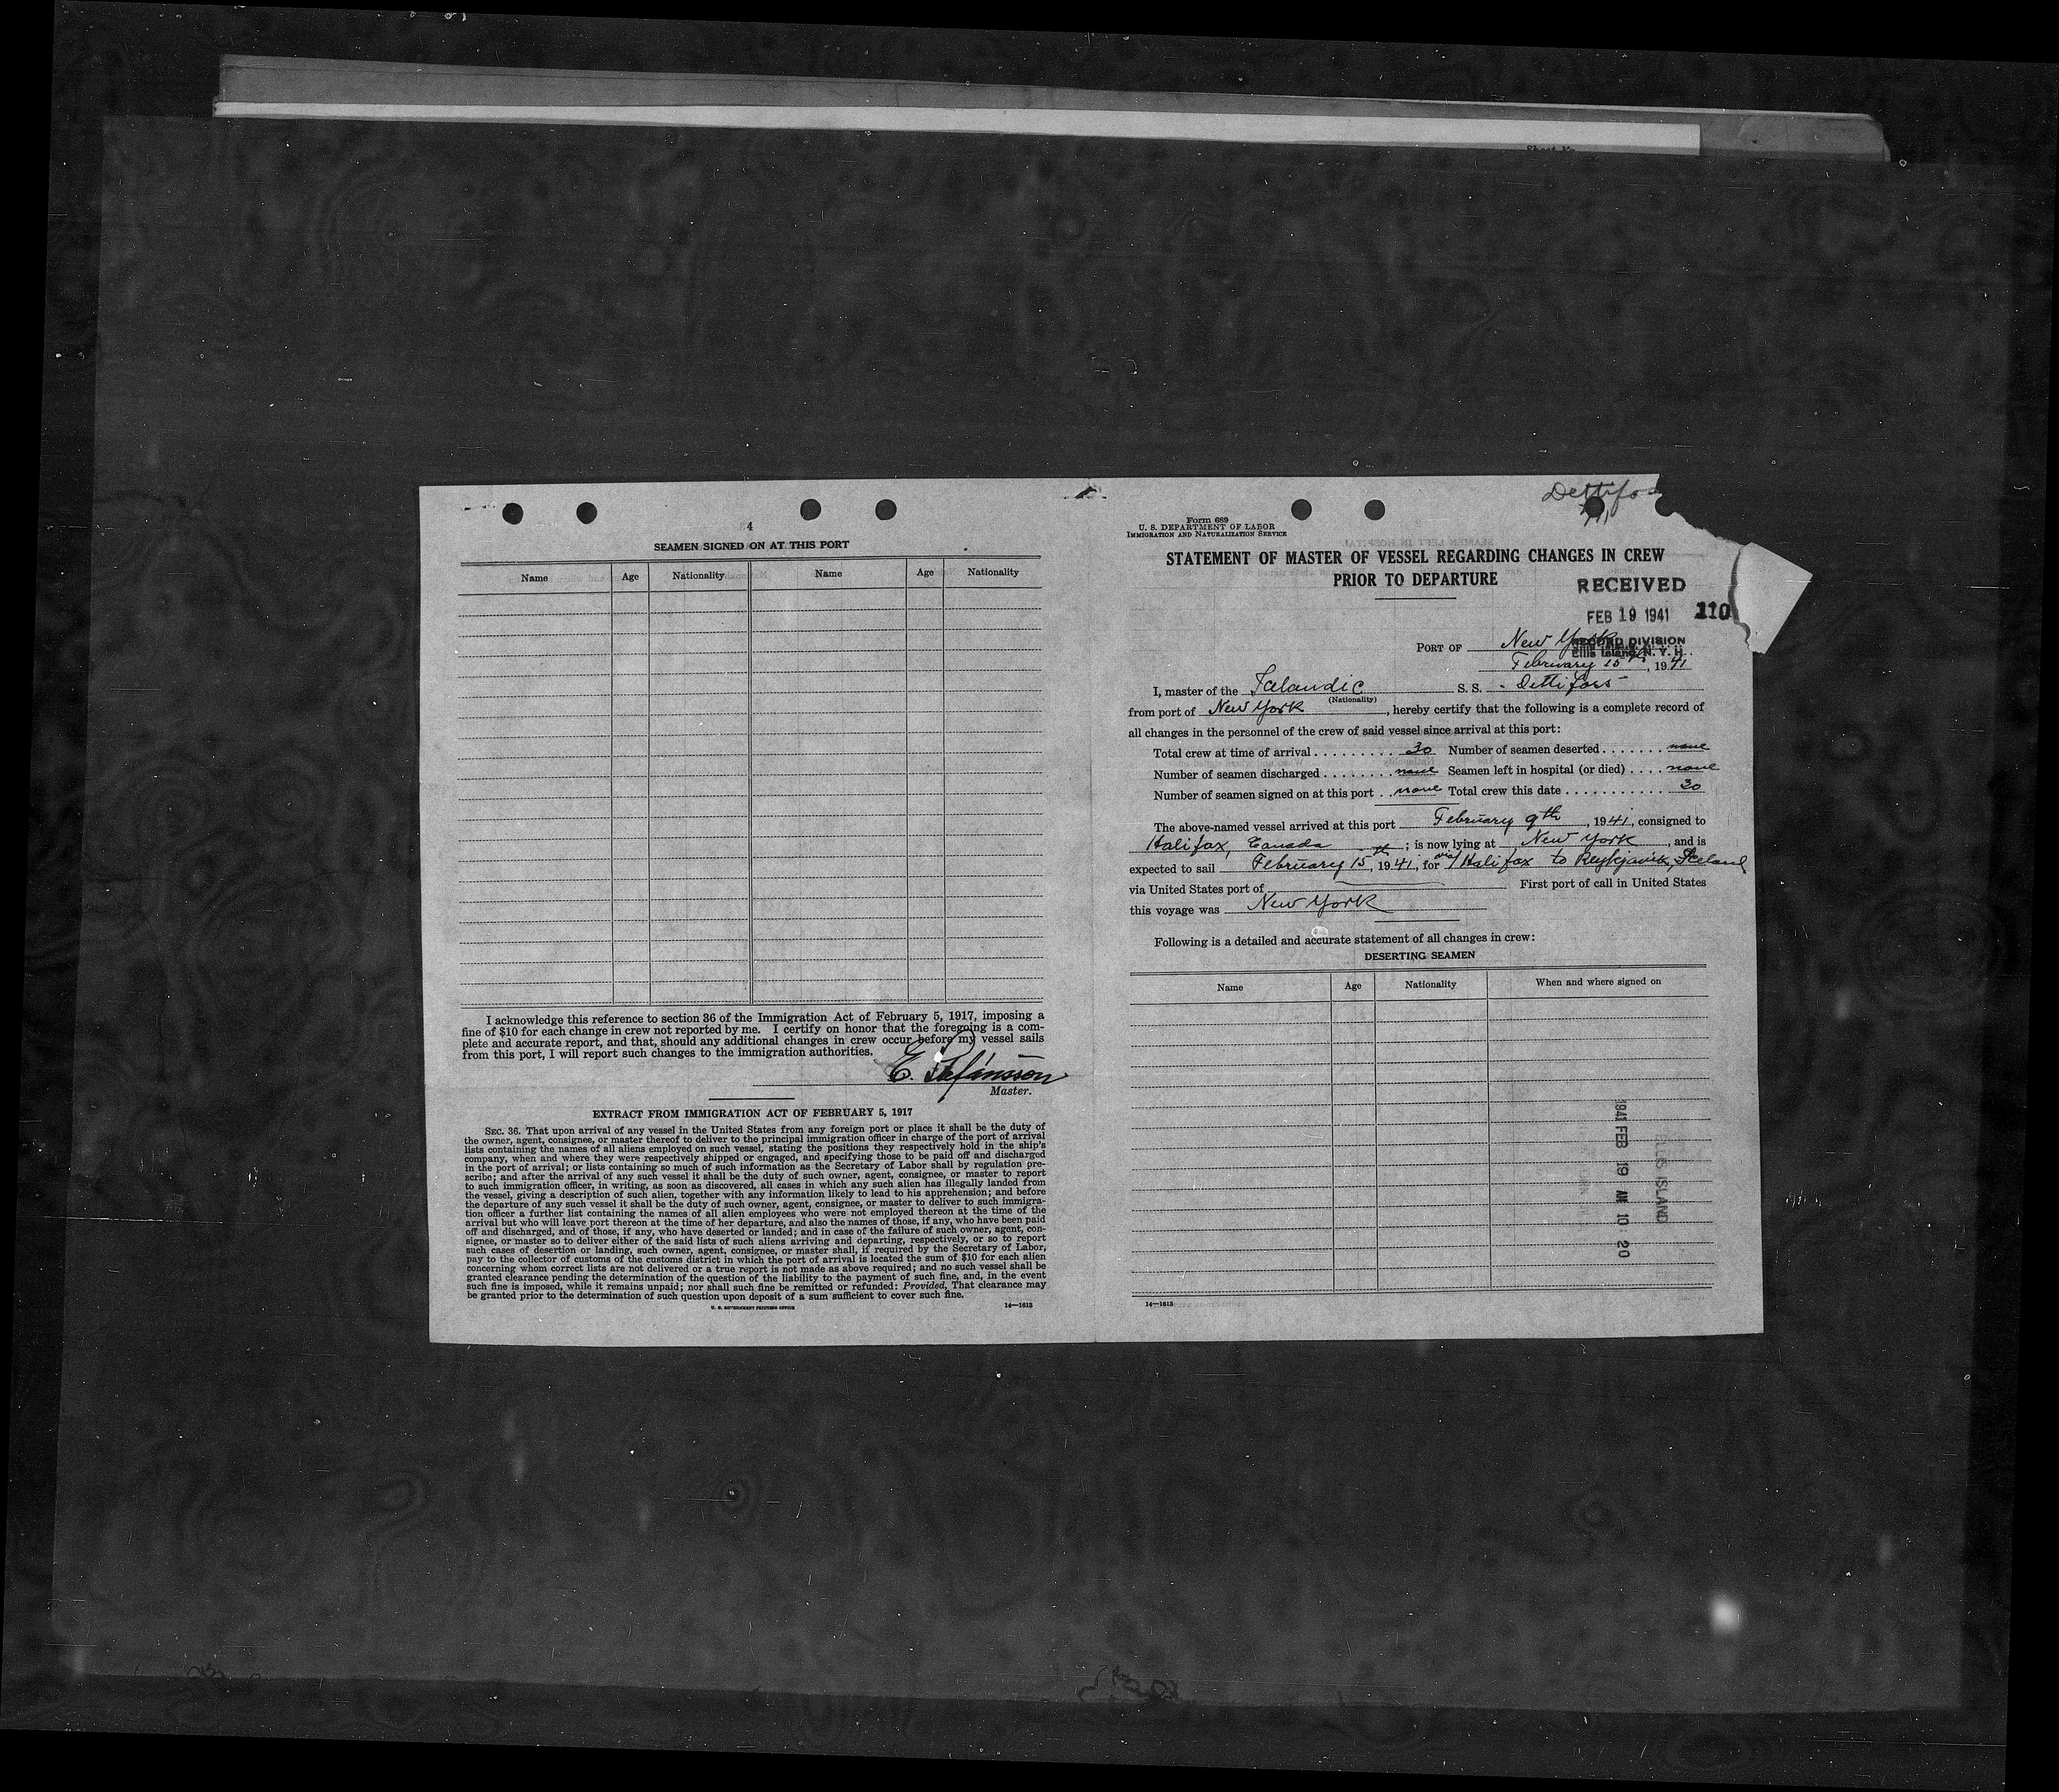 4
SEAMEN SIGNED ON AT THIS PORT
Name Age Nationality Name Age Nationality
I acknowledge this reference to section 36 of the Immigration Act of February 5, 1917, imposing a
fine of $10 for each change in crew not reported by me. I certify on honor that the foregoing is a com-
plete and accurate report, and that, should any additional changes in crew occur before my vessel sails
from this port, I will report such changes to the immigration authorities.
E. Stefánsson
Master.
EXTRACT FROM IMMIGRATION ACT OF FEBRUARY 5, 1917
SEC. 36. That upon arrival of any vessel in the United States from any foreign port or place it shall be the duty of
the owner, agent, consignee, or master thereof to deliver to the principal immigration officer in charge of the port of arrival
lists containing the names of all aliens employed on such vessel, stating the positions they respectively hold in the ship's
company, when and where they were respectively shipped or engaged, and specifying those to be paid off and discharged
in the port of arrival; or lists containing so much of such information as the Secretary of Labor shall by regulation pre-
scribe; and after the arrival of any such vessel it shall be the duty of such owner, agent, consignee, or master to report
to such immigration officer, in writing, as soon as discovered, all cases in which any such alien has illegally landed from
the vessel, giving a description of such alien, together with any information likely to lead to his apprehension; and before
the departure of any such vessel it shall be the duty of such owner, agent, consignee, or master to deliver to such immigra-
tion officer a further list containing the names of all alien employees who were not employed thereon at the time of the
arrival but who will leave port thereon at the time of her departure, and also the names of those, if any, who have been paid
off and discharged, and of those, if any, who have deserted or landed; and in case of the failure of such owner, agent, con-
signee, or master so to deliver either of the said lists of such aliens arriving and departing, respectively, or so to report
such cases of desertion or landing, such owner, agent, consignee, or master shall, if required by the Secretary of Labor,
pay to the collector of customs of the customs district in which the port of arrival is located the sum of $10 for each alien
concerning whom correct lists are not delivered or a true report is not made as above required; and no such vessel shall be
granted clearance pending the determination of the question of the liability to the payment of such fine, and, in the event
such fine is imposed, while it remains unpaid; nor shall such fine be remitted or refunded: Provided, That clearance may
be granted prior to the determination of such question upon deposit of a sum sufficient to cover such fine.
U. S. GOVERNMENT PRINTING OFFICE 14—1613
Dettifos
Form 689
U. S. DEPARTMENT OF LABOR
IMMIGRATION AND NATURALIZATION SERVICE
STATEMENT OF MASTER OF VESSEL REGARDING CHANGES IN CREW
PRIOR TO DEPARTURE
RECEIVED
FEB 19 1941 110
RECORD DIVISION
Ellis Island, N. Y. H.
PORT OF New York
February 15th, 1941
I, master of the Icelandic S. S. - Dettifoss -
(Nationality)
from port of New York, hereby certify that the following is a complete record of
all changes in the personnel of the crew of said vessel since arrival at this port:
Total crew at time of arrival . . . . . . . . . 30 Number of seamen deserted . . . . . . . none
Number of seamen discharged . . . . . . . . none Seamen left in hospital (or died) . . . . none
Number of seamen signed on at this port . . none Total crew this date . . . . . . . . . . . 30
The above-named vessel arrived at this port February 9th, 1941, consigned to
Halifax, Canada ; is now lying at New York, and is
expected to sail February 15th, 1941, for via/ Halifax to Reykjavik, Iceland
via United States port of First port of call in United States
this voyage was New York
Following is a detailed and accurate statement of all changes in crew:
DESERTING SEAMEN
Name Age Nationality When and where signed on
1941 FEB 19 AM 10 20
ELLIS ISLAND
14—1613